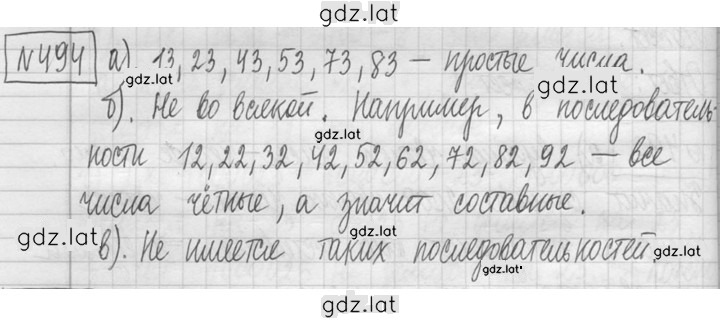 gdz.lat
№494 а). 13, 23, 43, 53, 73, 83 — простые числа.
gdz.lat
gdz.lat
б). Не во всякой. Например, в последователь-
gdz.lat
ности 12, 22, 32, 42, 52, 62, 72, 82, 92 — все
числа чётные, а значит составные.
gdz.lat
gdz.lat
в). Не имеется таких последовательностей.
gdz.lat
gdz.lat